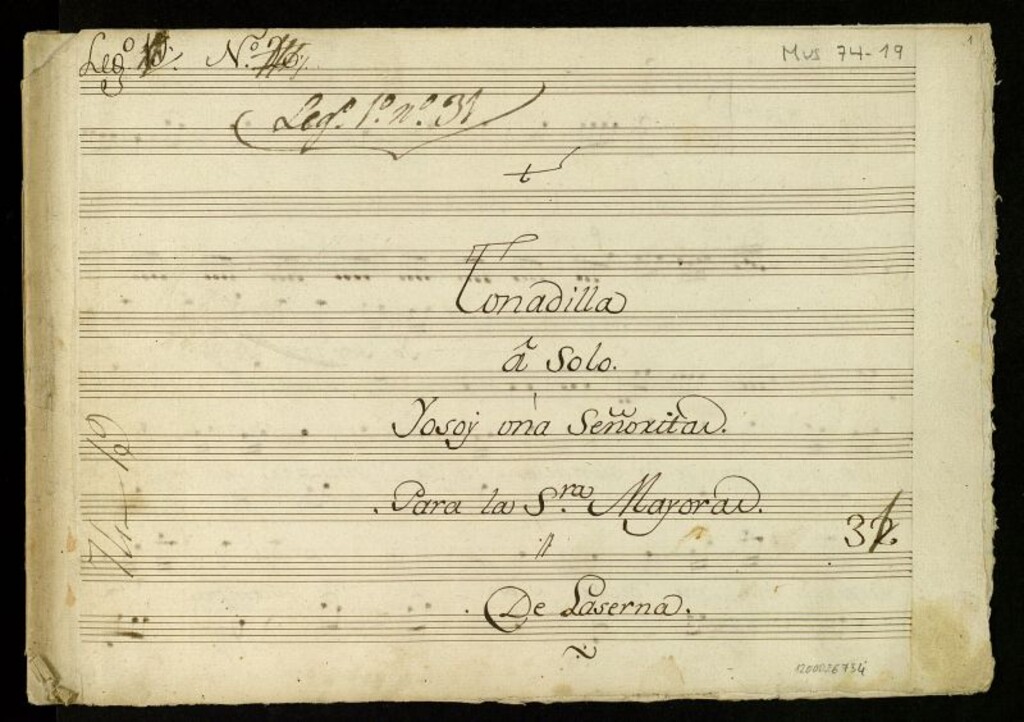 Leg.º Nº
Mus 74-19
1
Legº. 1º. nº. 31
Tonadilla
â Solo.
Yosoy una Señorita.
Para la S.ra Mayora.
74-19
De Laserna.
1200026734